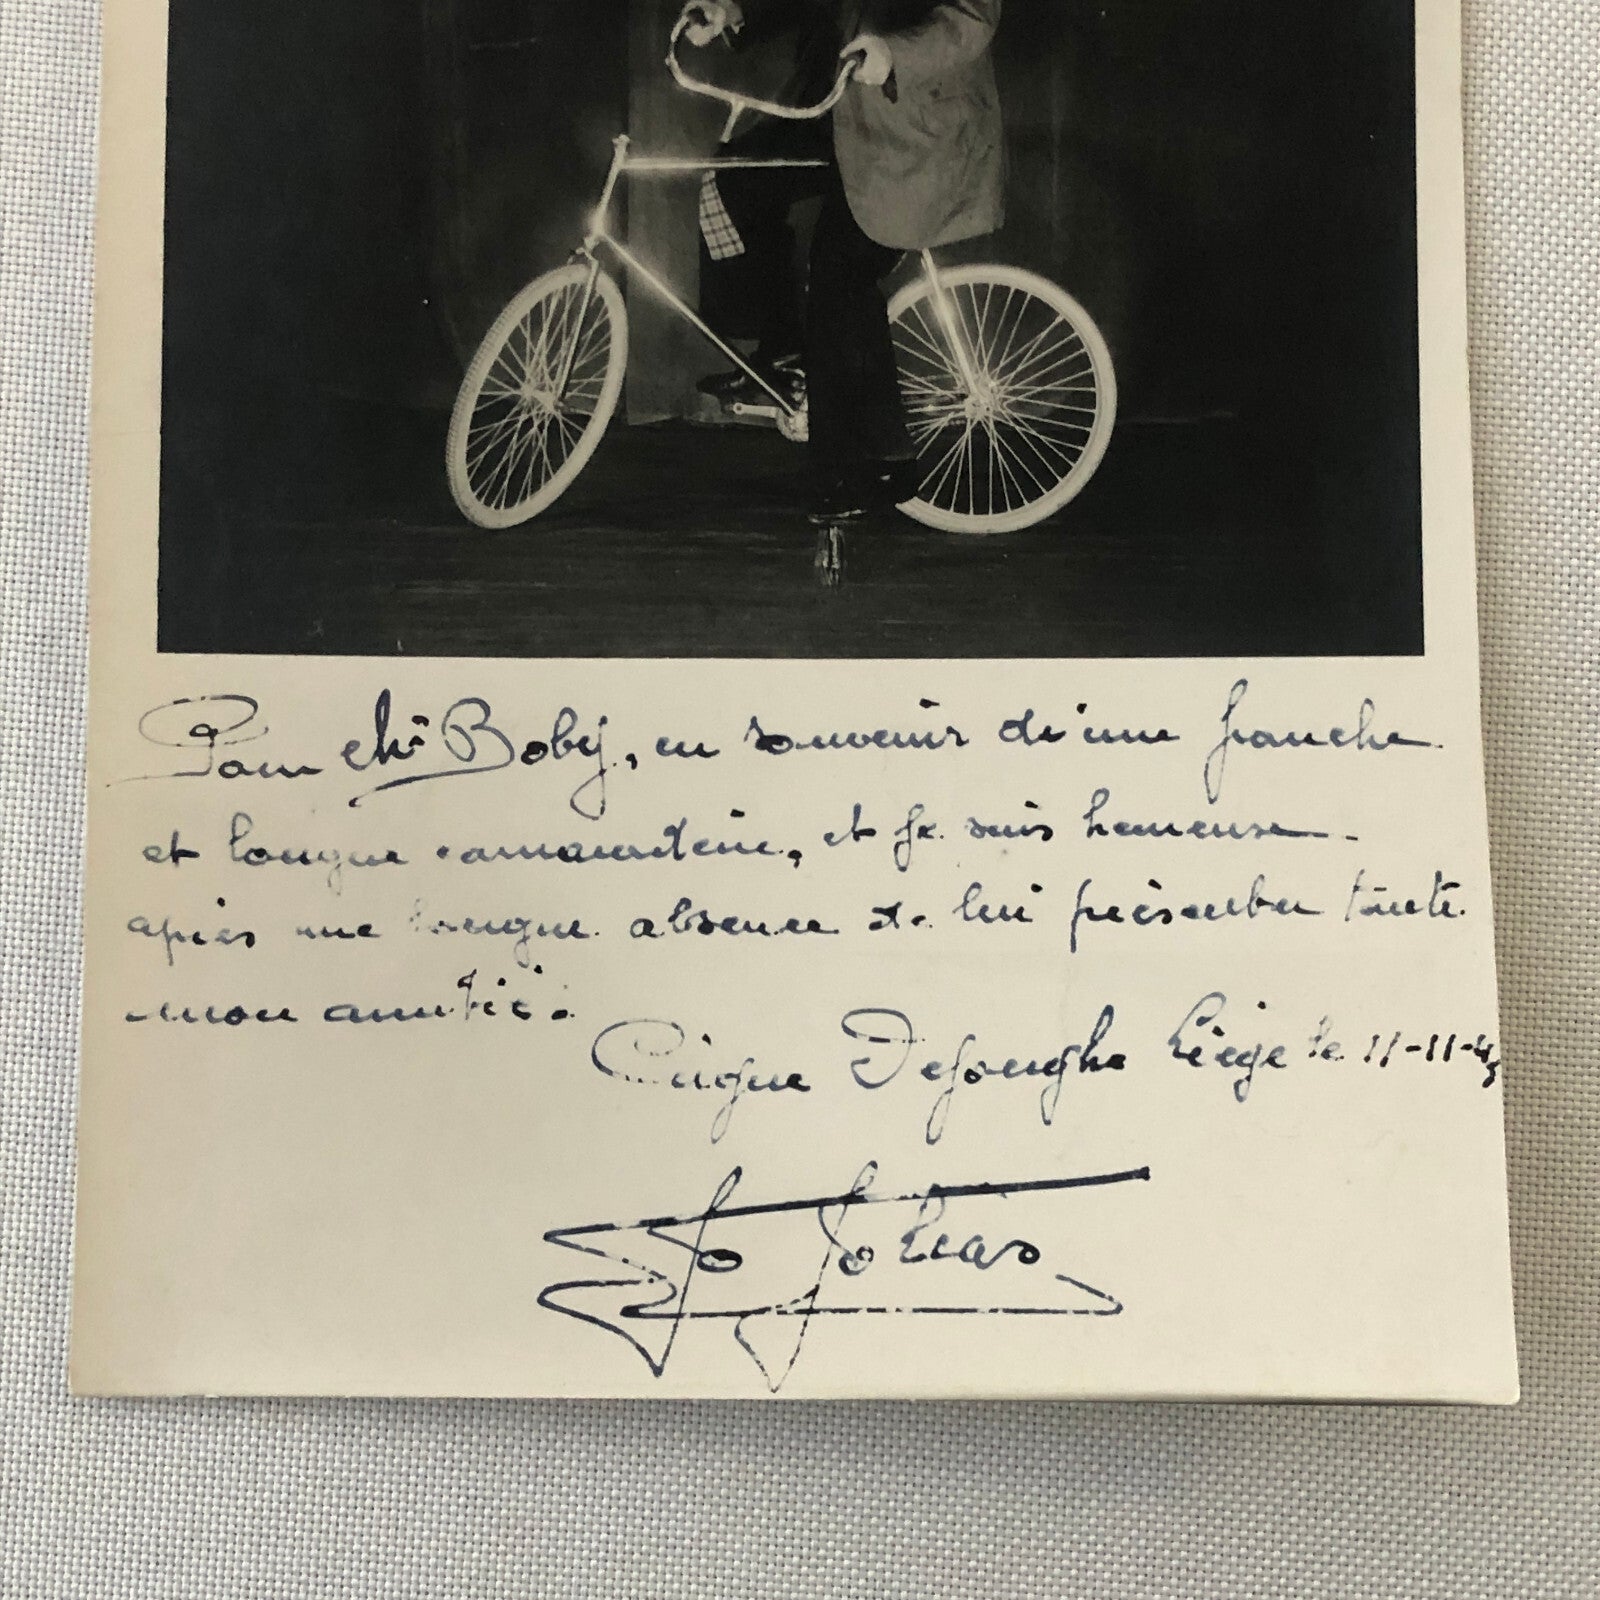 Pour cher Boby, en souvenir d'une franche
et longue camaraderie, et je suis heureuse
après une longue absence de lui présenter toute
mon amitié.
Cirque Dejonghe Liège le 11-11-45
Jo Jo